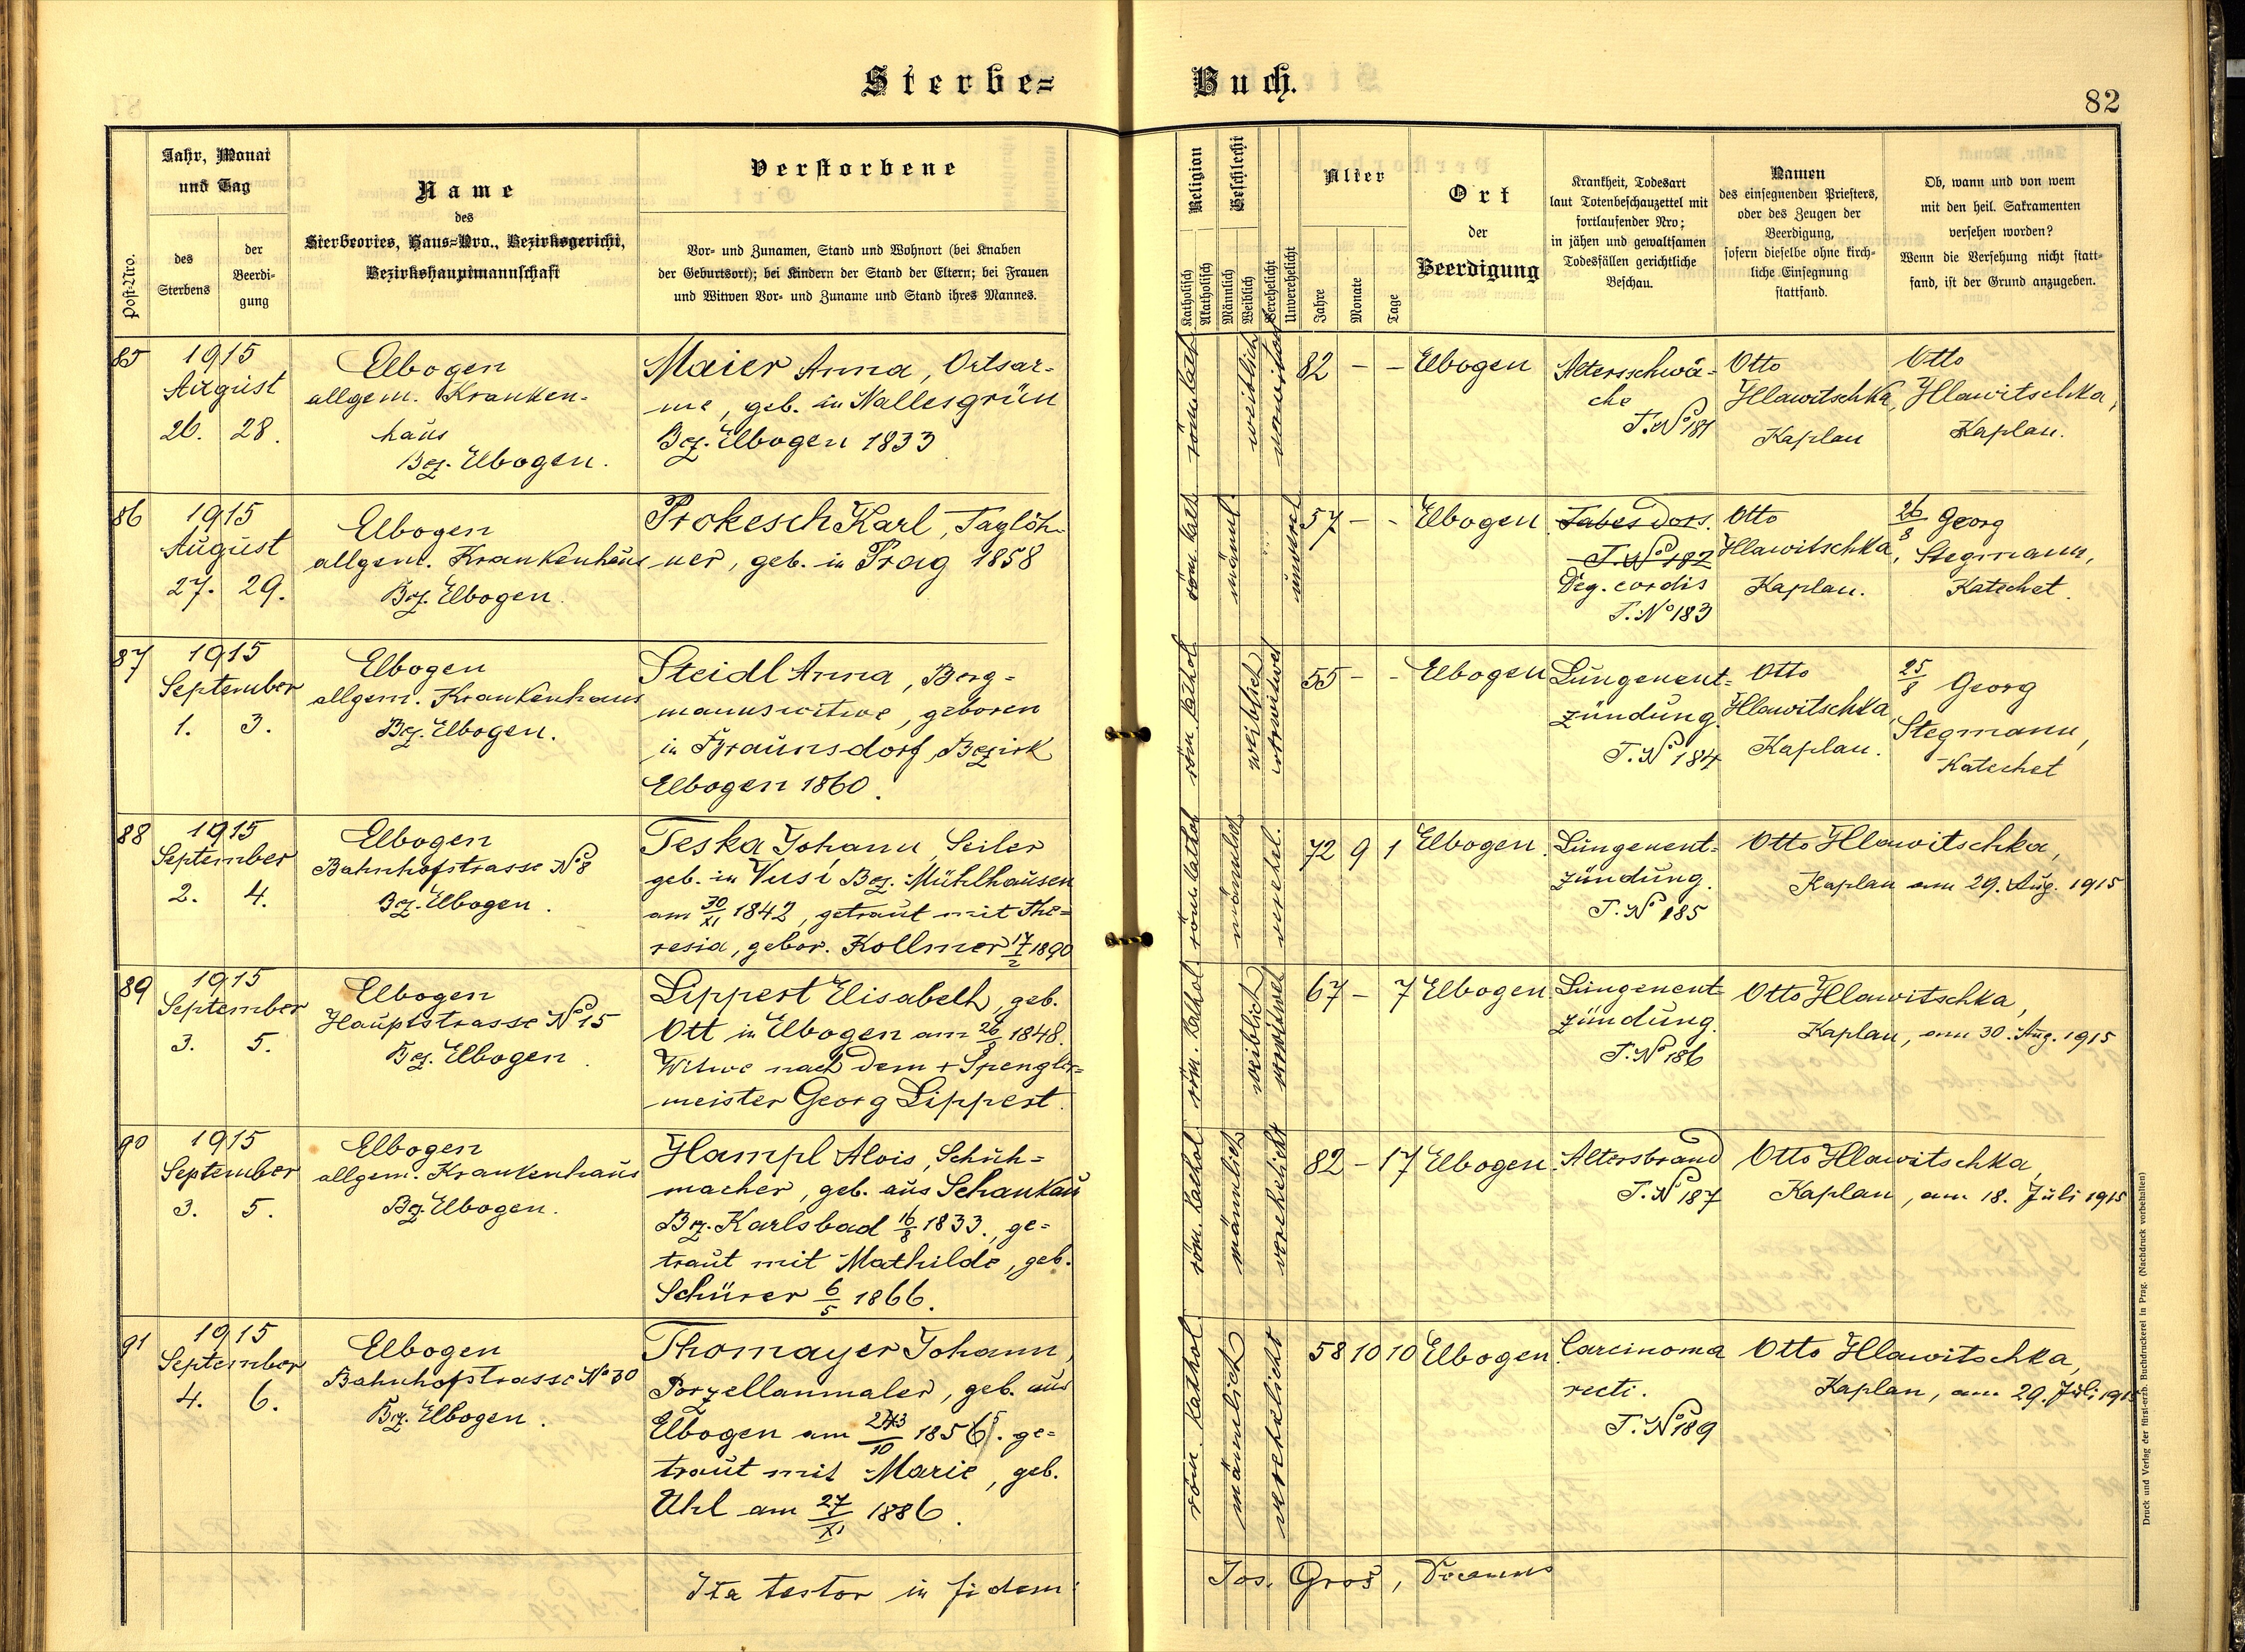 Sterbe=
Buch.
82
Post-Nro.
Jahr, Monat
und Tag
des
Sterbens
der
Beerdi-
gung
Name
des
Sterbeortes, Haus=Nro., Bezirksgericht,
Bezirkshauptmannschaft
Verstorbene
Vor- und Zunamen, Stand und Wohnort (bei Knaben
der Geburtsort); bei Kindern der Stand der Eltern; bei Frauen
und Witwen Vor- und Zuname und Stand ihres Mannes.
Religion
Katholisch
Akatholisch
Geschlecht
Männlich
Weiblich
Verehelicht
Unverehelicht
Alter
Jahre
Monate
Tage
Ort
der
Beerdigung
Krankheit, Todesart
laut Totenbeschauzettel mit
fortlaufender Nro;
in jähen und gewaltsamen
Todesfällen gerichtliche
Beschau.
Namen
des einsegnenden Priesters,
oder des Zeugen der
Beerdigung,
sofern dieselbe ohne kirch-
liche Einsegnung
stattfand.
Ob, wann und von wem
mit den heil. Sakramenten
versehen worden?
Wenn die Versehung nicht statt-
fand, ist der Grund anzugeben.
85
1915
August
26. 28.
Elbogen
allgem. Kranken-
haus
Bez. Elbogen.
Maier Anna, Ortsar-
me, geb. in Nallesgrün
Bez. Elbogen 1833
röm. kath.
weiblich
verwitwet
82 - -
Elbogen
Altersschwä-
che
T. No 181
Otto
Hlawitschka,
Kaplan
Otto
Hlawitschka,
Kaplan.
86
1915
August
27. 29.
Elbogen
allgem. Krankenhaus
Bez. Elbogen.
Prokesch Karl, Taglöh-
ner, geb. in Prag 1858
röm. kath.
männl.
unvereh.
57 - -
Elbogen
Tabes dors.
T. No 182
Deg. cordis
T. No 183
Otto
Hlawitschka,
Kaplan.
26/8 Georg
Stegmann,
Katechet.
87
1915
September
1. 3.
Elbogen
allgem. Krankenhaus
Bez. Elbogen.
Steidl Anna, Berg=
mannswitwe, geboren
in Braunsdorf, Bezirk
Elbogen 1860.
röm. kathol.
weiblich
verwitwet
55 - -
Elbogen
Lungenent=
zündung.
T. No 184
Otto
Hlawitschka
Kaplan.
25/8 Georg
Stegmann,
Katechet
88
1915
September
2. 4.
Elbogen
Bahnhofstrasse No 8
Bez. Elbogen.
Teska Johann, Seiler
geb. in Vusi Bez. Mühlhausen
am 30/XI 1842, getraut mit The=
resia, gebor. Kollmer 17/2 1890
röm. kathol.
männlich
verehel.
72 9 1
Elbogen.
Lungenent=
zündung.
T. No 185
Otto Hlawitschka,
Kaplan am 29. Aug. 1915
89
1915
September
3. 5.
Elbogen
Hauptstrasse No 15
Bez. Elbogen.
Lippert Elisabeth, geb.
Ott in Elbogen am 26/8 1848.
Witwe nach dem + Spengler=
meister Georg Lippert.
röm. kathol.
weiblich
verwitwet
67 - 7
Elbogen
Lungenent=
zündung.
T. No 186
Otto Hlawitschka,
Kaplan, am 30. Aug. 1915
90
1915
September
3. 5.
Elbogen
allgem. Krankenhaus
Bez. Elbogen.
Hampl Alois, Schuh=
macher, geb. aus Schankau
Bez. Karlsbad 16/8 1833., ge=
traut mit Mathilde, geb.
Schürer 6/5 1866.
röm. kathol.
männlich
verehelicht
82 - 17
Elbogen.
Altersbrand
T. No 187
Otto Hlawitschka,
Kaplan, am 18. Juli 1915
91
1915
September
4. 6.
Elbogen
Bahnhofstrasse No 30
Bez. Elbogen.
Thomayer Johann,
Porzellanmaler, geb. aus
Elbogen am /10 1856. ge=
traut mit Marie, geb.
Uhl am 27/XI 1886.
röm. kathol.
männlich
verehelicht
58 10 10
Elbogen.
Carcinoma
recti.
T. No 189
Otto Hlawitschka,
Kaplan, am 29. Juli 1915
Ita testor in fidem:
Jos. Groß,
Druck und Verlag der fürst-erzb. Buchdruckerei in Prag. (Nachdruck vorbehalten)